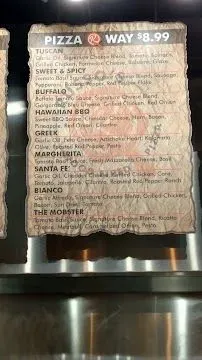 PIZZA R WAY $8.99
TUSCAN
Garlic Oil, Signature Cheese Blend, Tomato, Spinach,
Grilled Chicken, Parmesan Cheese, Balsamic Glaze
SWEET & SPICY
Tomato Basil Sauce, Signature Cheese Blend, Sausage,
Pepperoni, Banana Pepper, Red Onion
BUFFALO
Buffalo Sauce, Signature Cheese Blend,
Gorgonzola Bleu Cheese, Grilled Chicken, Red Onion
HAWAIIAN BBQ
Sweet BBQ Sauce, Cheddar Cheese, Ham, Bacon,
Pineapple, Red Onion, Cilantro
GREEK
Garlic Oil, Spinach, Artichoke Heart, Kalamata
Olive, Roasted Red Pepper, Pesto
MARGHERITA
Tomato Basil Sauce, Fresh Mozzarella Cheese, Basil
SANTA FE
Garlic Oil, Cheddar Cheese, Grilled Chicken, Corn,
Tomato, Jalapeno, Cilantro, Roasted Red Pepper Ranch
BIANCO
Garlic Alfredo, Signature Cheese Blend, Grilled Chicken,
Bacon, Tomato
THE MOBSTER
Tomato Basil Sauce, Signature Cheese Blend, Ricotta
Cheese, Meatball, Caramelized Onion, Pesto